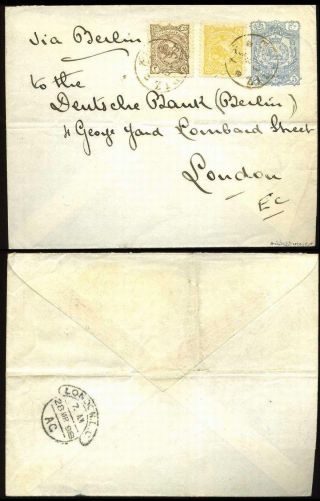 via Berlin
to the
Deutsche Bank (Berlin)
4 George Yard Lombard Street
London
EC
LONDON. E.C.
7 AM
AC